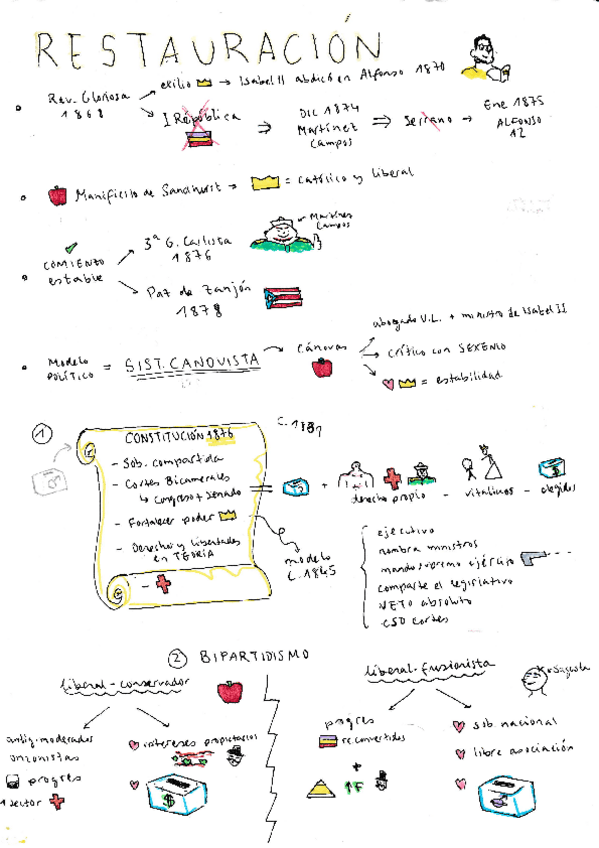 RESTAURACIÓN
Rev. Gloriosa
1868
exilio → Isabel II abdicó en Alfonso 1870
I República
⇒
DIC 1874
Martínez
Campos
⇒ Serrano →
Ene 1875
ALFONSO
12
Manifiesto de Sandhurst → = católico y liberal
COMIENZO
estable
3ª G. Carlista
1876
Martínez
Campos
Paz de Zanjón
1878
Modelo
POLÍTICO = SIST. CANOVISTA
Cánovas
abogado U.L. + ministro de Isabel II
Crítico con SEXENIO
= estabilidad
1
CONSTITUCIÓN 1876
- Sob. compartida
- Cortes Bicamerales
↳ Congreso + Senado
- Fortalecer poder
- Derechos y libertades
en TEORÍA
-
=
+
derecho propio - vitalicios - elegidos
modelo
C. 1845
ejecutivo
nombra ministros
mando supremo ejército
comparte el legislativo
VETO absoluto
CSO cortes
2 BIPARTIDISMO
liberal-conservador
antig. moderados
unionistas
progres
1 sector
intereses propietarios
$
liberal-fusionista
Sagasta
progres
reconvertidos
+
↑F
sob. nacional
libre asociación